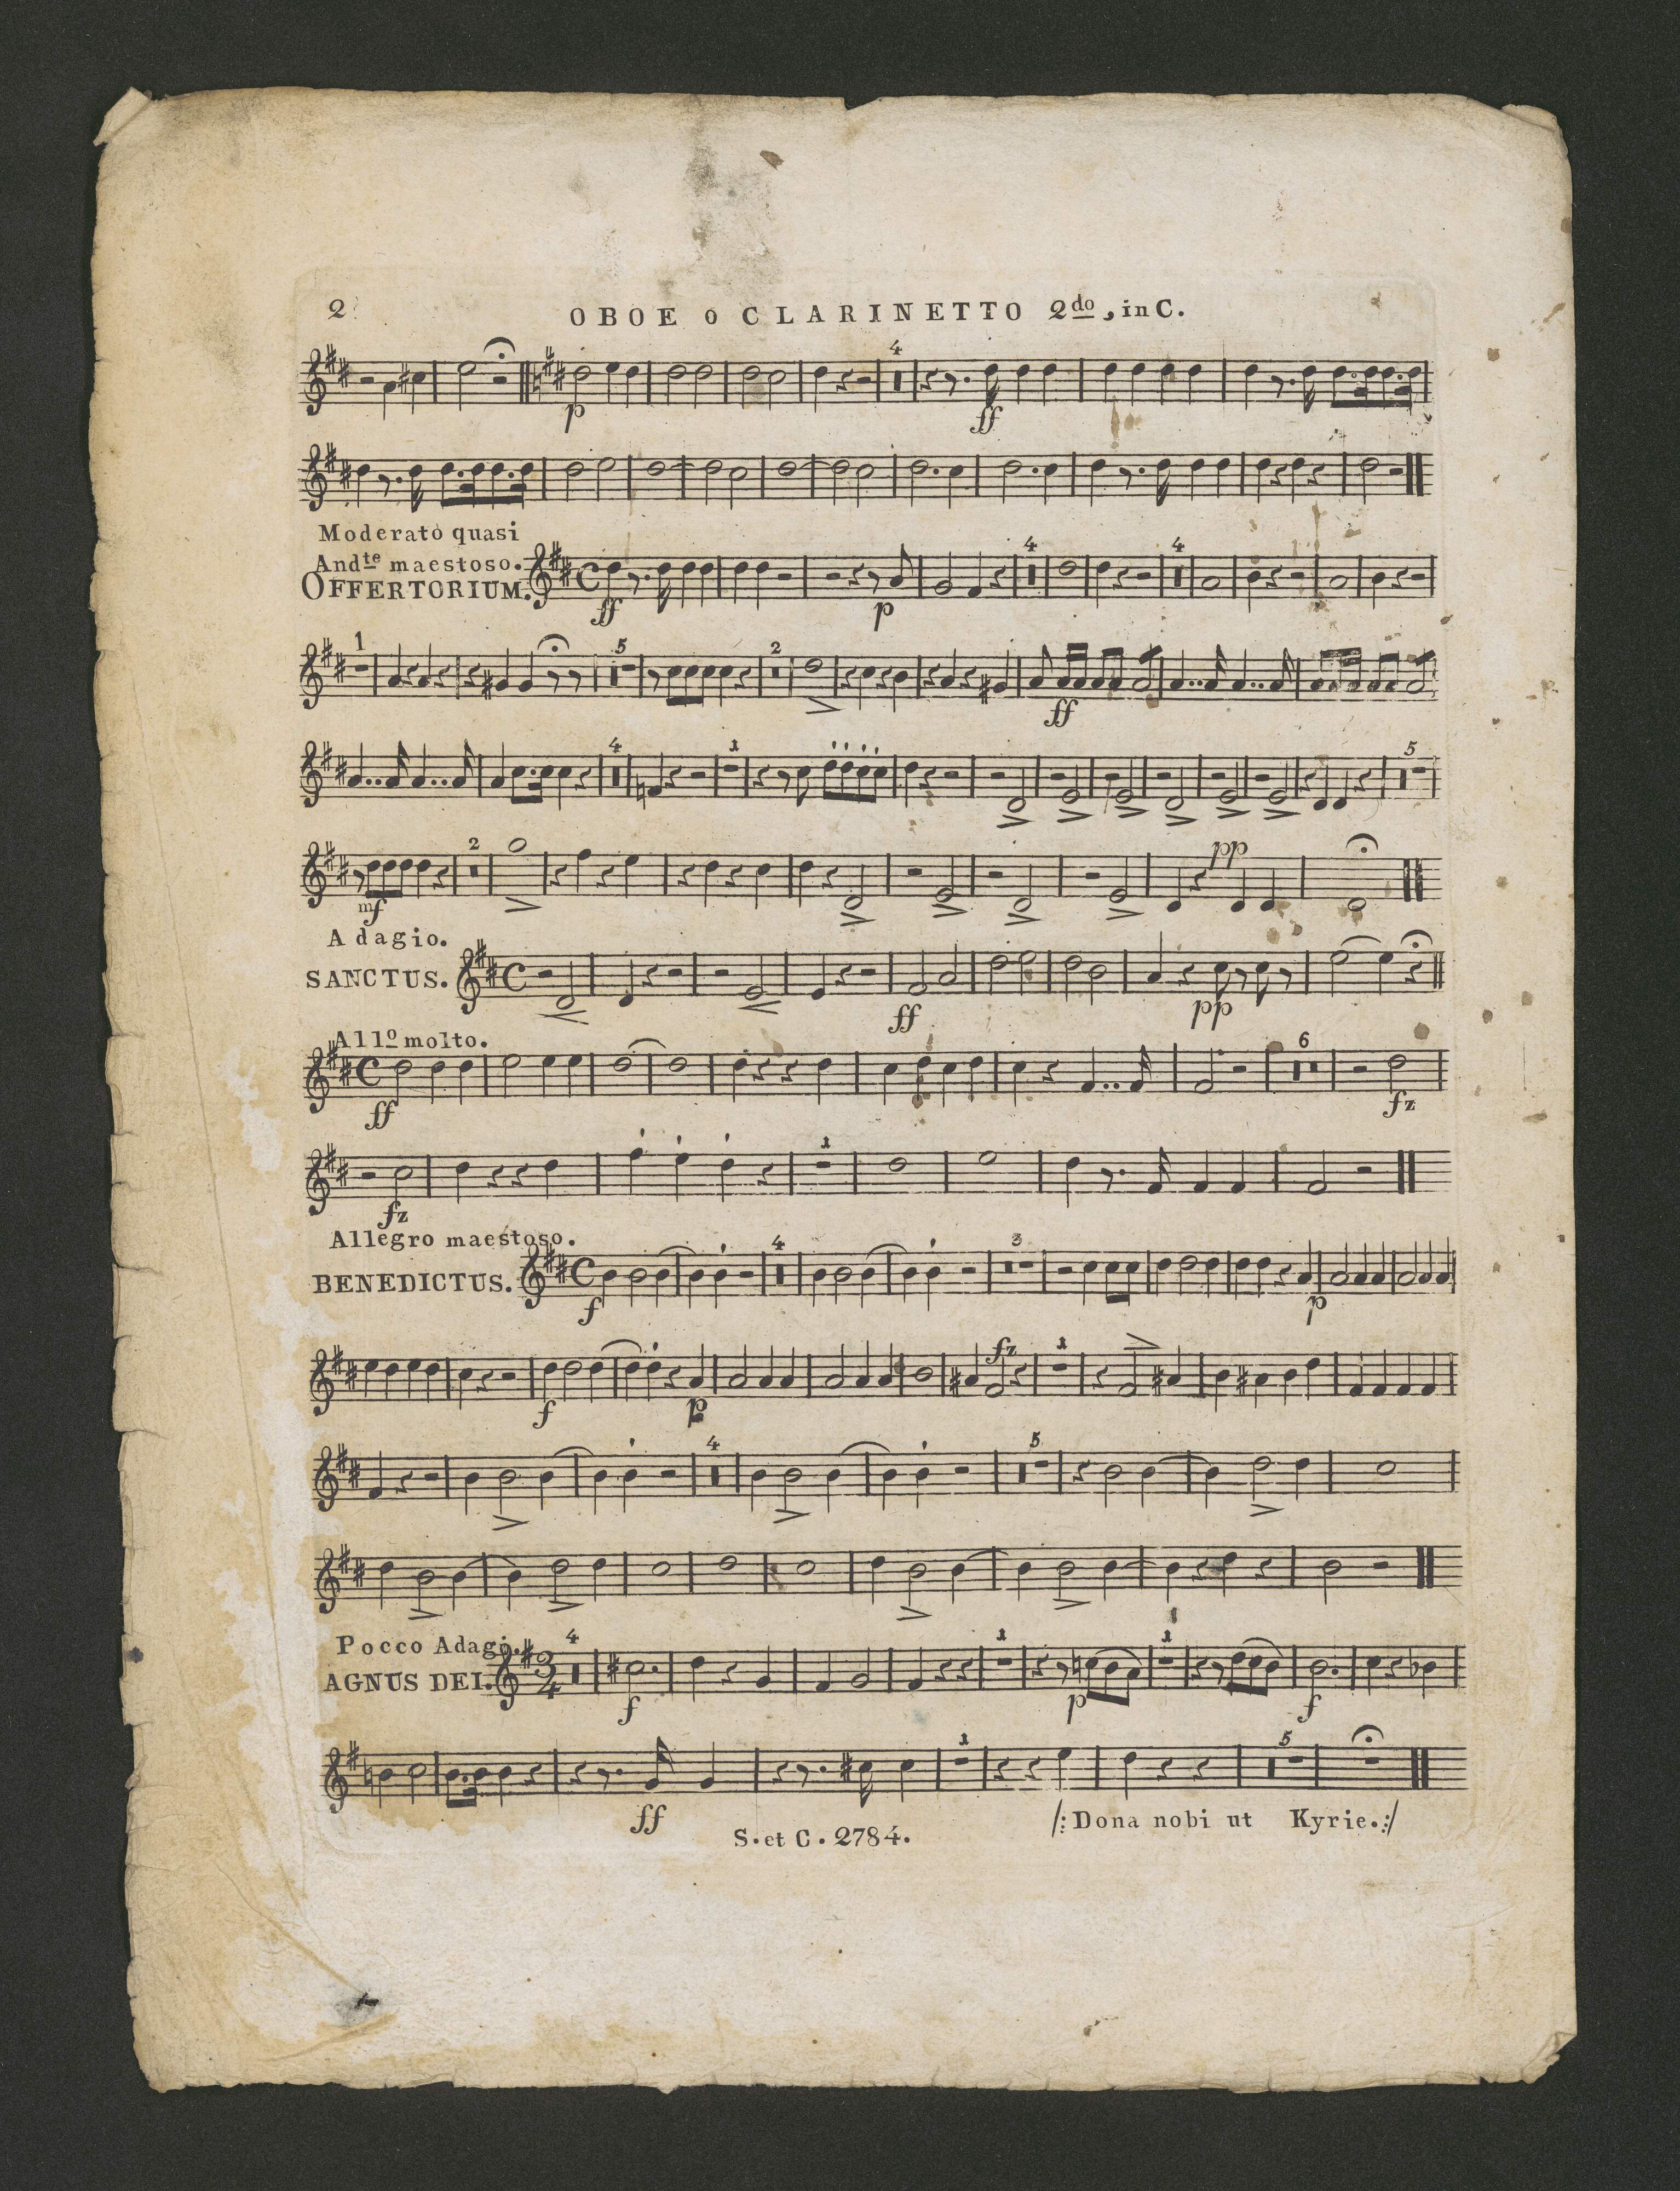 2
OBOE o CLARINETTO 2do, in C.
4
p
ff
Moderato quasi
Andte maestoso.
OFFERTORIUM.
4
4
ff
p
1
5
2
ff
4
1
5
2
pp
mf
Adagio.
SANCTUS.
ff
pp
Allo molto.
6
ff
fz
1
fz
Allegro maestoso.
BENEDICTUS.
4
3
f
p
fz
1
f
p
4
5
Pocco Adagio.
AGNUS DEI.
3
4
4
1
1
f
p
f
1
5
ff
/: Dona nobi ut Kyrie. :/
S. et C. 2784.